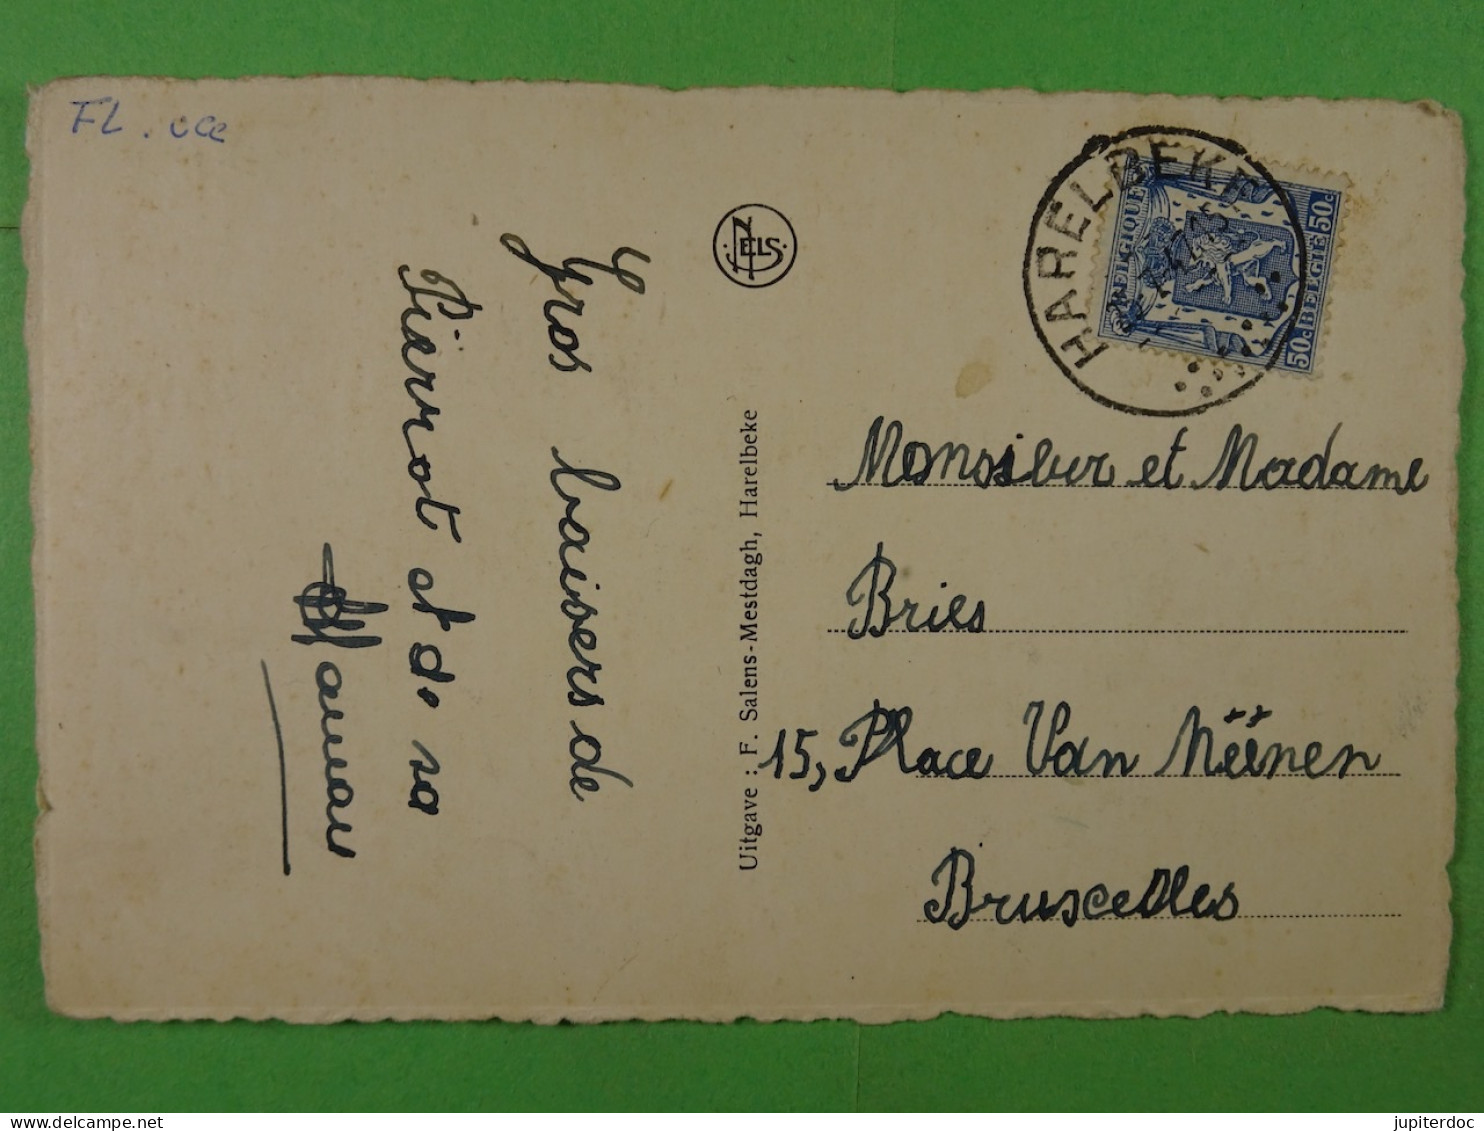 FL. occ
Gros baisers de
Pierrot et de sa
Maman
NELS
Uitgave : F. Salens-Mestdagh, Harelbeke
HARELBEKE
BELGIQUE 50c
50c BELGIE
Monsieur et Madame
Bries
15, Place Van Mëënen
Bruxcelles
jupiterdoc